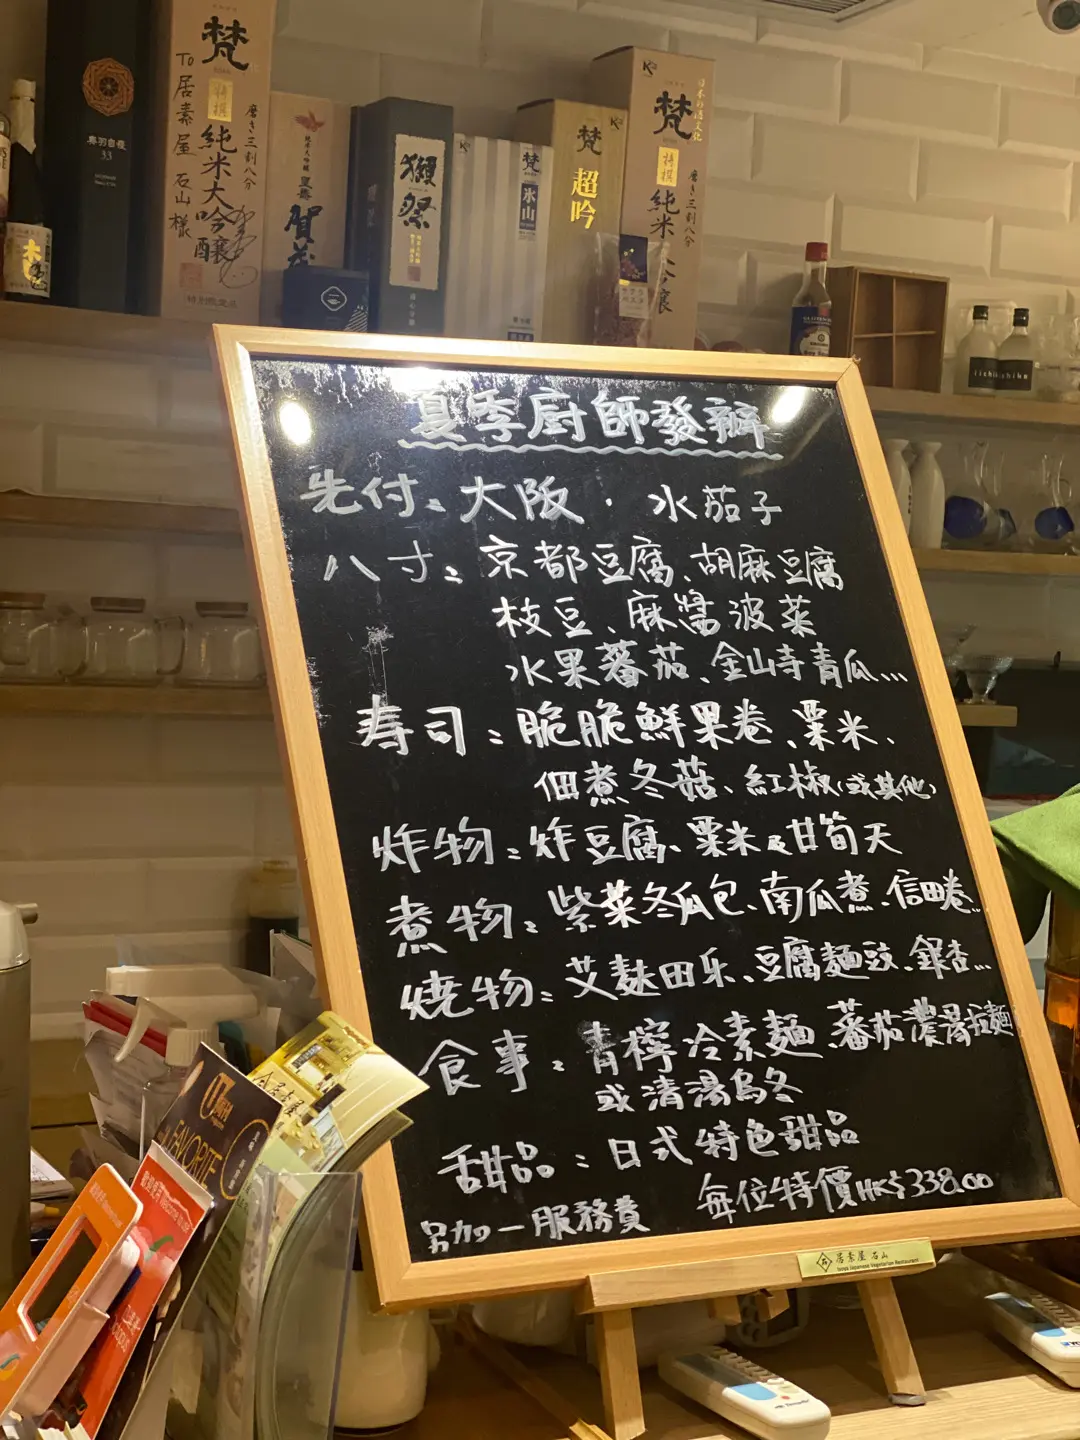 梵
特撰
純米大吟醸
磨き三割八分
To 居素屋 石山 様
特別限定品
33
賀茂
獺祭
梵
氷山
梵
超吟
K2
梵
特撰
純米大吟醸
磨き三割八分
iichiko
夏季厨師發辦
先付：大阪．水茄子
八寸：京都豆腐、胡麻豆腐
枝豆、麻醬波菜
水果蕃茄、金山寺青瓜...
寿司：脆脆鮮果卷、粟米、
佃煮冬菇、紅椒(或其他)
炸物：炸豆腐、粟米及甘筍天
煮物：紫菜冬瓜包、南瓜煮、信田卷..
燒物：艾麩田乐、豆腐麵豉、銀杏...
食事：青檸冷素麵、蕃茄濃湯拉麵
或清湯烏冬
甜品：日式特色甜品
另加一服務費 每位特價HK$338.00
居素屋 石山
Isoya Japanese Vegetarian Restaurant
FAVORITE
居素屋